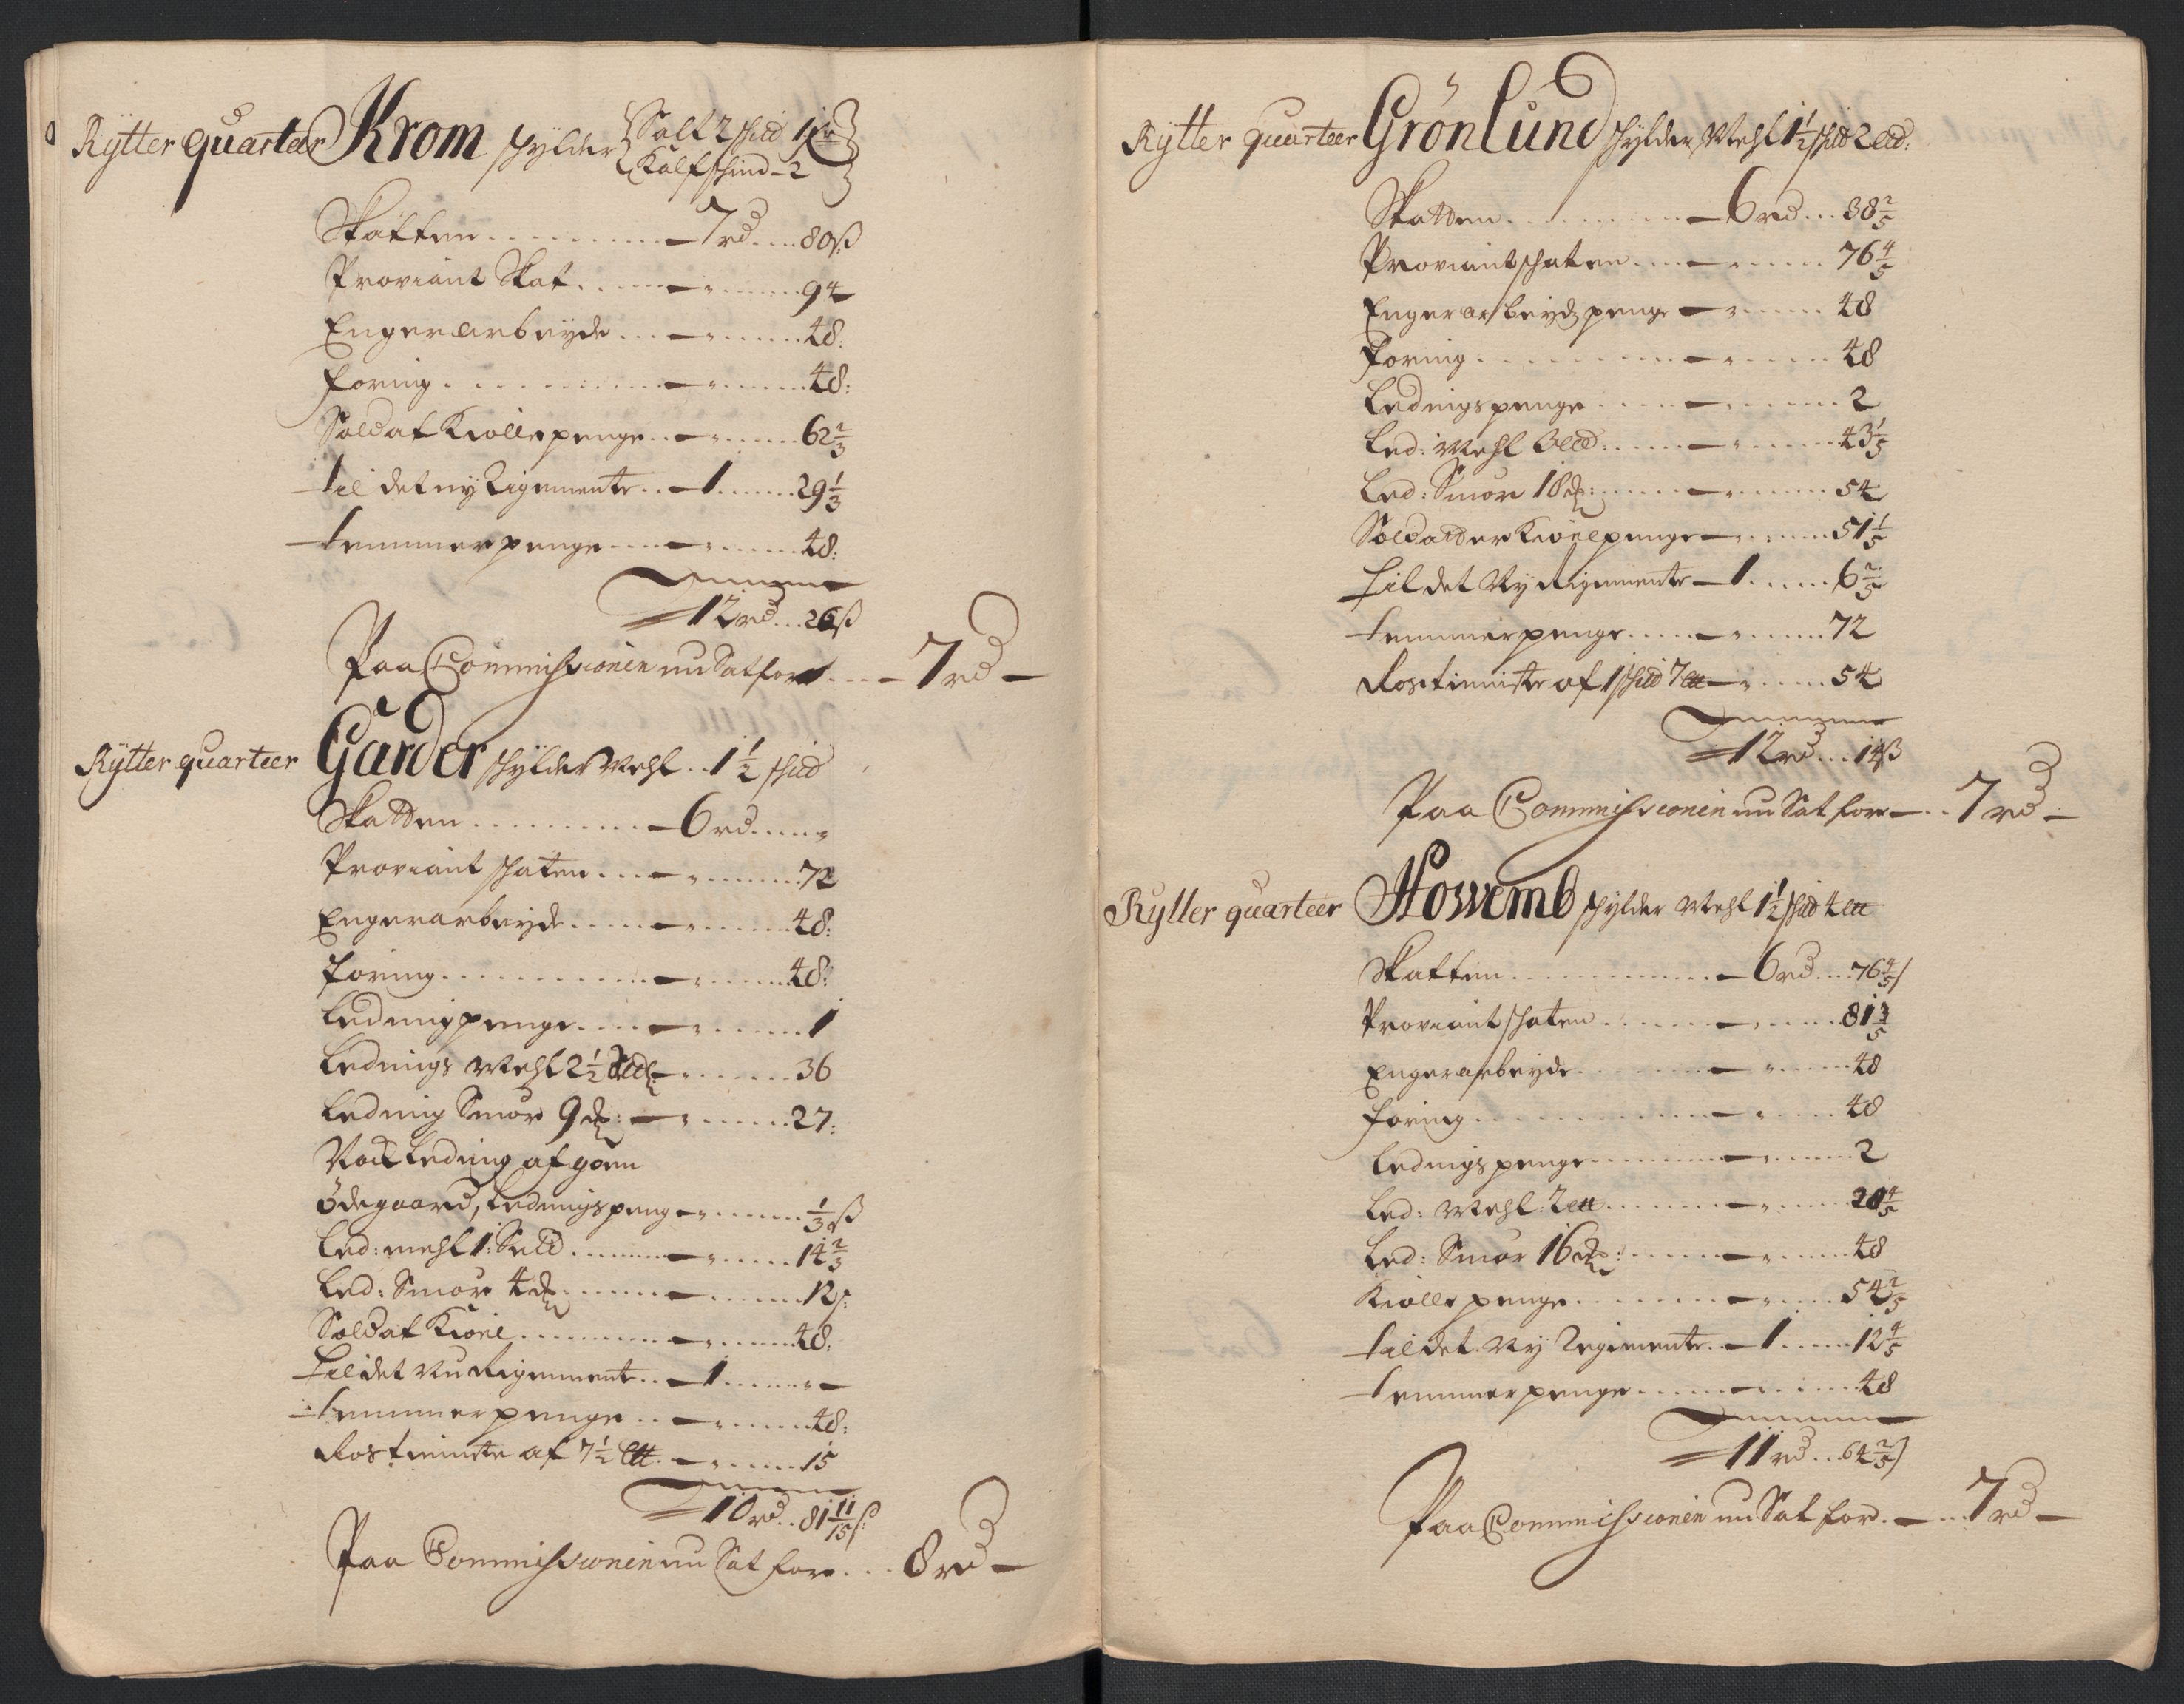 Rytter quarteer Krom schylder Salt 2 skud 1 lp
Kalfschind - 2
Skatten - 7 rd 80 ß
Proviant Skat - " 94
Engerarbeyde - " 48:
foring - " 48:
Soldat Kiolle penge - " 62 2/3
til det ny Rigemente - 1 29 1/3
temmerpenge - " 48:
Summa
12 rd 26 ß
Paa Commissionen nu Sat for - 7 rd -
Rytter quarteer Garder schylder Mehl 1 1/2 skud
Skatten - 6 rd "
Proviant schaten - " 72
Engerarbeyde - " 48:
foring - " 48:
Ledingpenge - " 1
Ledings Mehl 2 1/2 - " 36
Leding Smør 9 - " 27:
Nock Leding af goen
Ødegaard, Ledingspeng - " 1/3 ß
Led: mehl 1 - " 14 2/3
Led: Smør 4 - " 12
Soldat Kioel - " 48:
til det nu Rigemente - 1 " -
temmerpenge - " 48:
Rostieniste af 7 1/2 - " 15
10 rd 81 11/15 ß
Paa Commissionen nu Sat for 8 rd -
Rytter quarteer Grönlund schylder Mehl 1 1/2 skud 2
Skatten - 6 rd 38 2/5
Proviantschaten - " 76 4/5
Engerarbeyds penge - " 48
foring - " 48
Ledingspenge - " 2
Led: Mehl 3 - " 43 1/5
Led: Smør 18 - " 54
Soldatter Kioelpenge - " 51 1/5
til det Ny Rigemente - 1 6 2/5
temmerpenge - " 72
Rostieniste af 1 skud 7 - " 54
Summa
12 rd 14 ß
Paa Commissionen nu Sat for - 7 rd -
Rytter quarteer Howemb schylder Mehl 1 1/2 skud 4
Skatten - 6 rd 76 4/5
Proviantschaten - " 81 3/5
Engerarbeyde - " 48
foring - " 48
Ledingspenge - " 2
Led: Mehl: 2 - " 28 4/5
Led: Smør 16 - " 48
Kiolle penge - " 54 2/5
til det Ny Regimente - 1 12 4/5
temmerpenge - " 48
Summa
11 rd 64 2/5
Paa Commissionen nu Sat for - 7 rd -